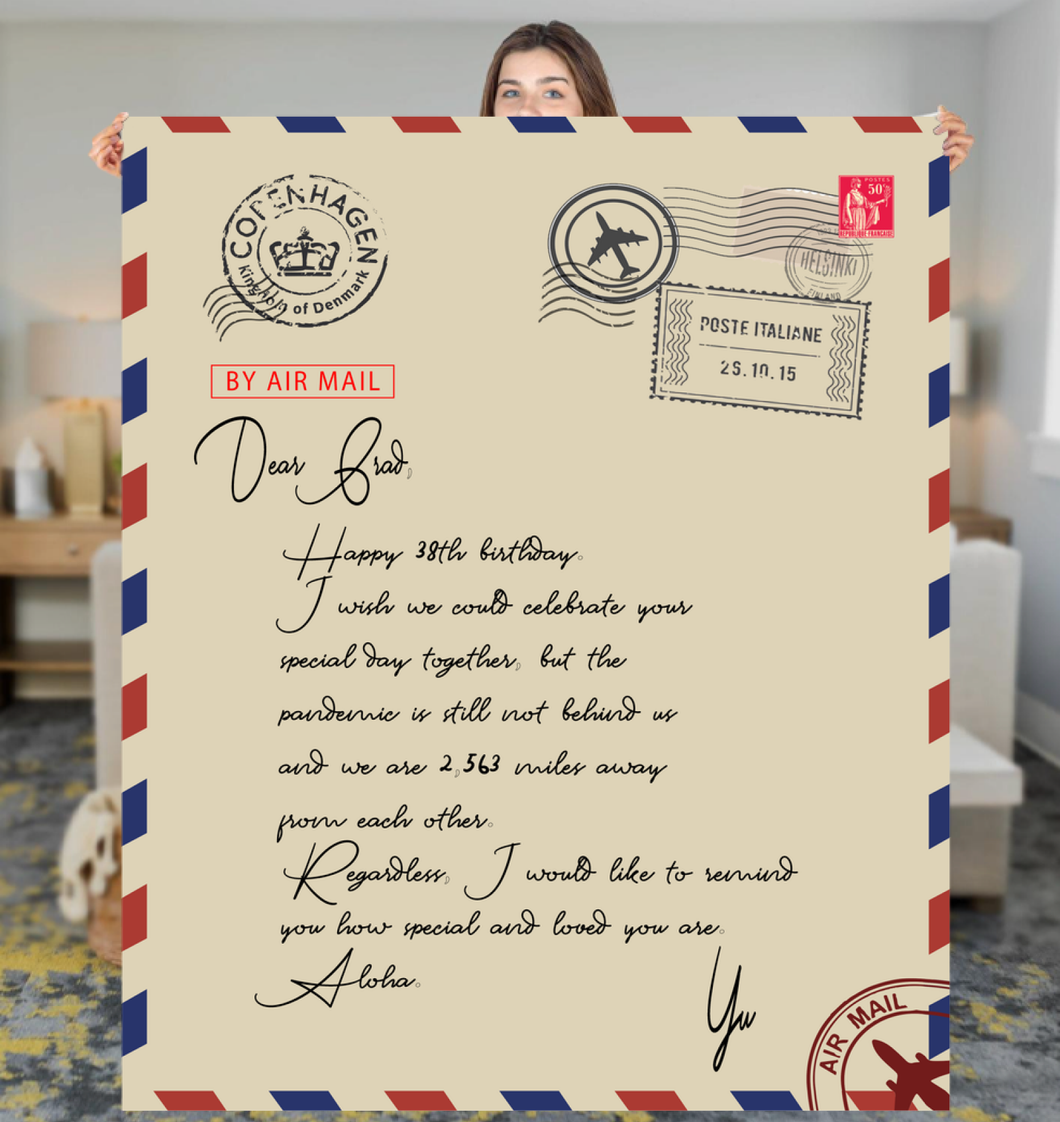 COPENHAGEN
Kingdom of Denmark
POSTES
50c
REPUBLIQUE FRANCAISE
HELSINKI
FINLAND
POSTE ITALIANE
26.10.15
BY AIR MAIL
Dear Brad,
Happy 38th birthday.
I wish we could celebrate your
special day together, but the
pandemic is still not behind us
and we are 2,563 miles away
from each other.
Regardless, I would like to remind
you how special and loved you are.
Aloha.
Yu
AIR MAIL